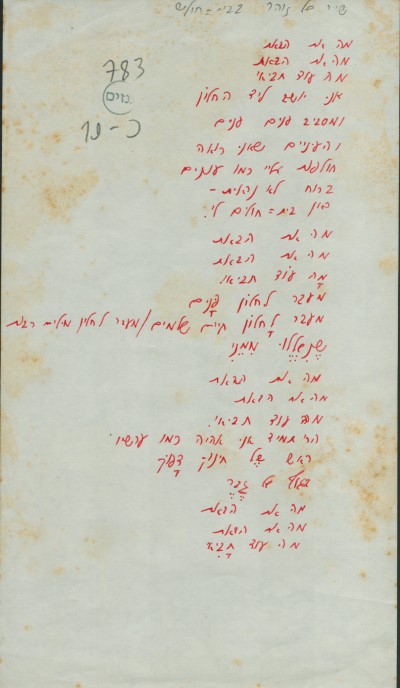 שיר של זוהר בבית-חולים
783
גנזים
כ-פן
מה את הבאת
מה את הבאת
מה עוד תביאי
אני יושב ליד החלון
ומסביב ענים ענים
והעיניים שאני רואה
חולפות עלי כמו עננים
ברוח לא נהגית-
כאן בית-חולים לי.
מה את הבאת
מה את הבאת
מָה עוֹד תביאי.
מעבר לחלון פָּנִים
מעבר לַחלון חיים שלמים/מעבר לחלון מילים רבות
שֶׁנִּגְזְלוּ מִמֶּנִּי
מה את הבאת
מה את הבאת
מה עוד תביאי.
הרי תמיד אני אהיה כמו עכשיו
ראש שֶל תינוק דָפוּק
של גֶבֶר
מה את הבאת
מה את הבאת
מה עוד תָבִיאִי